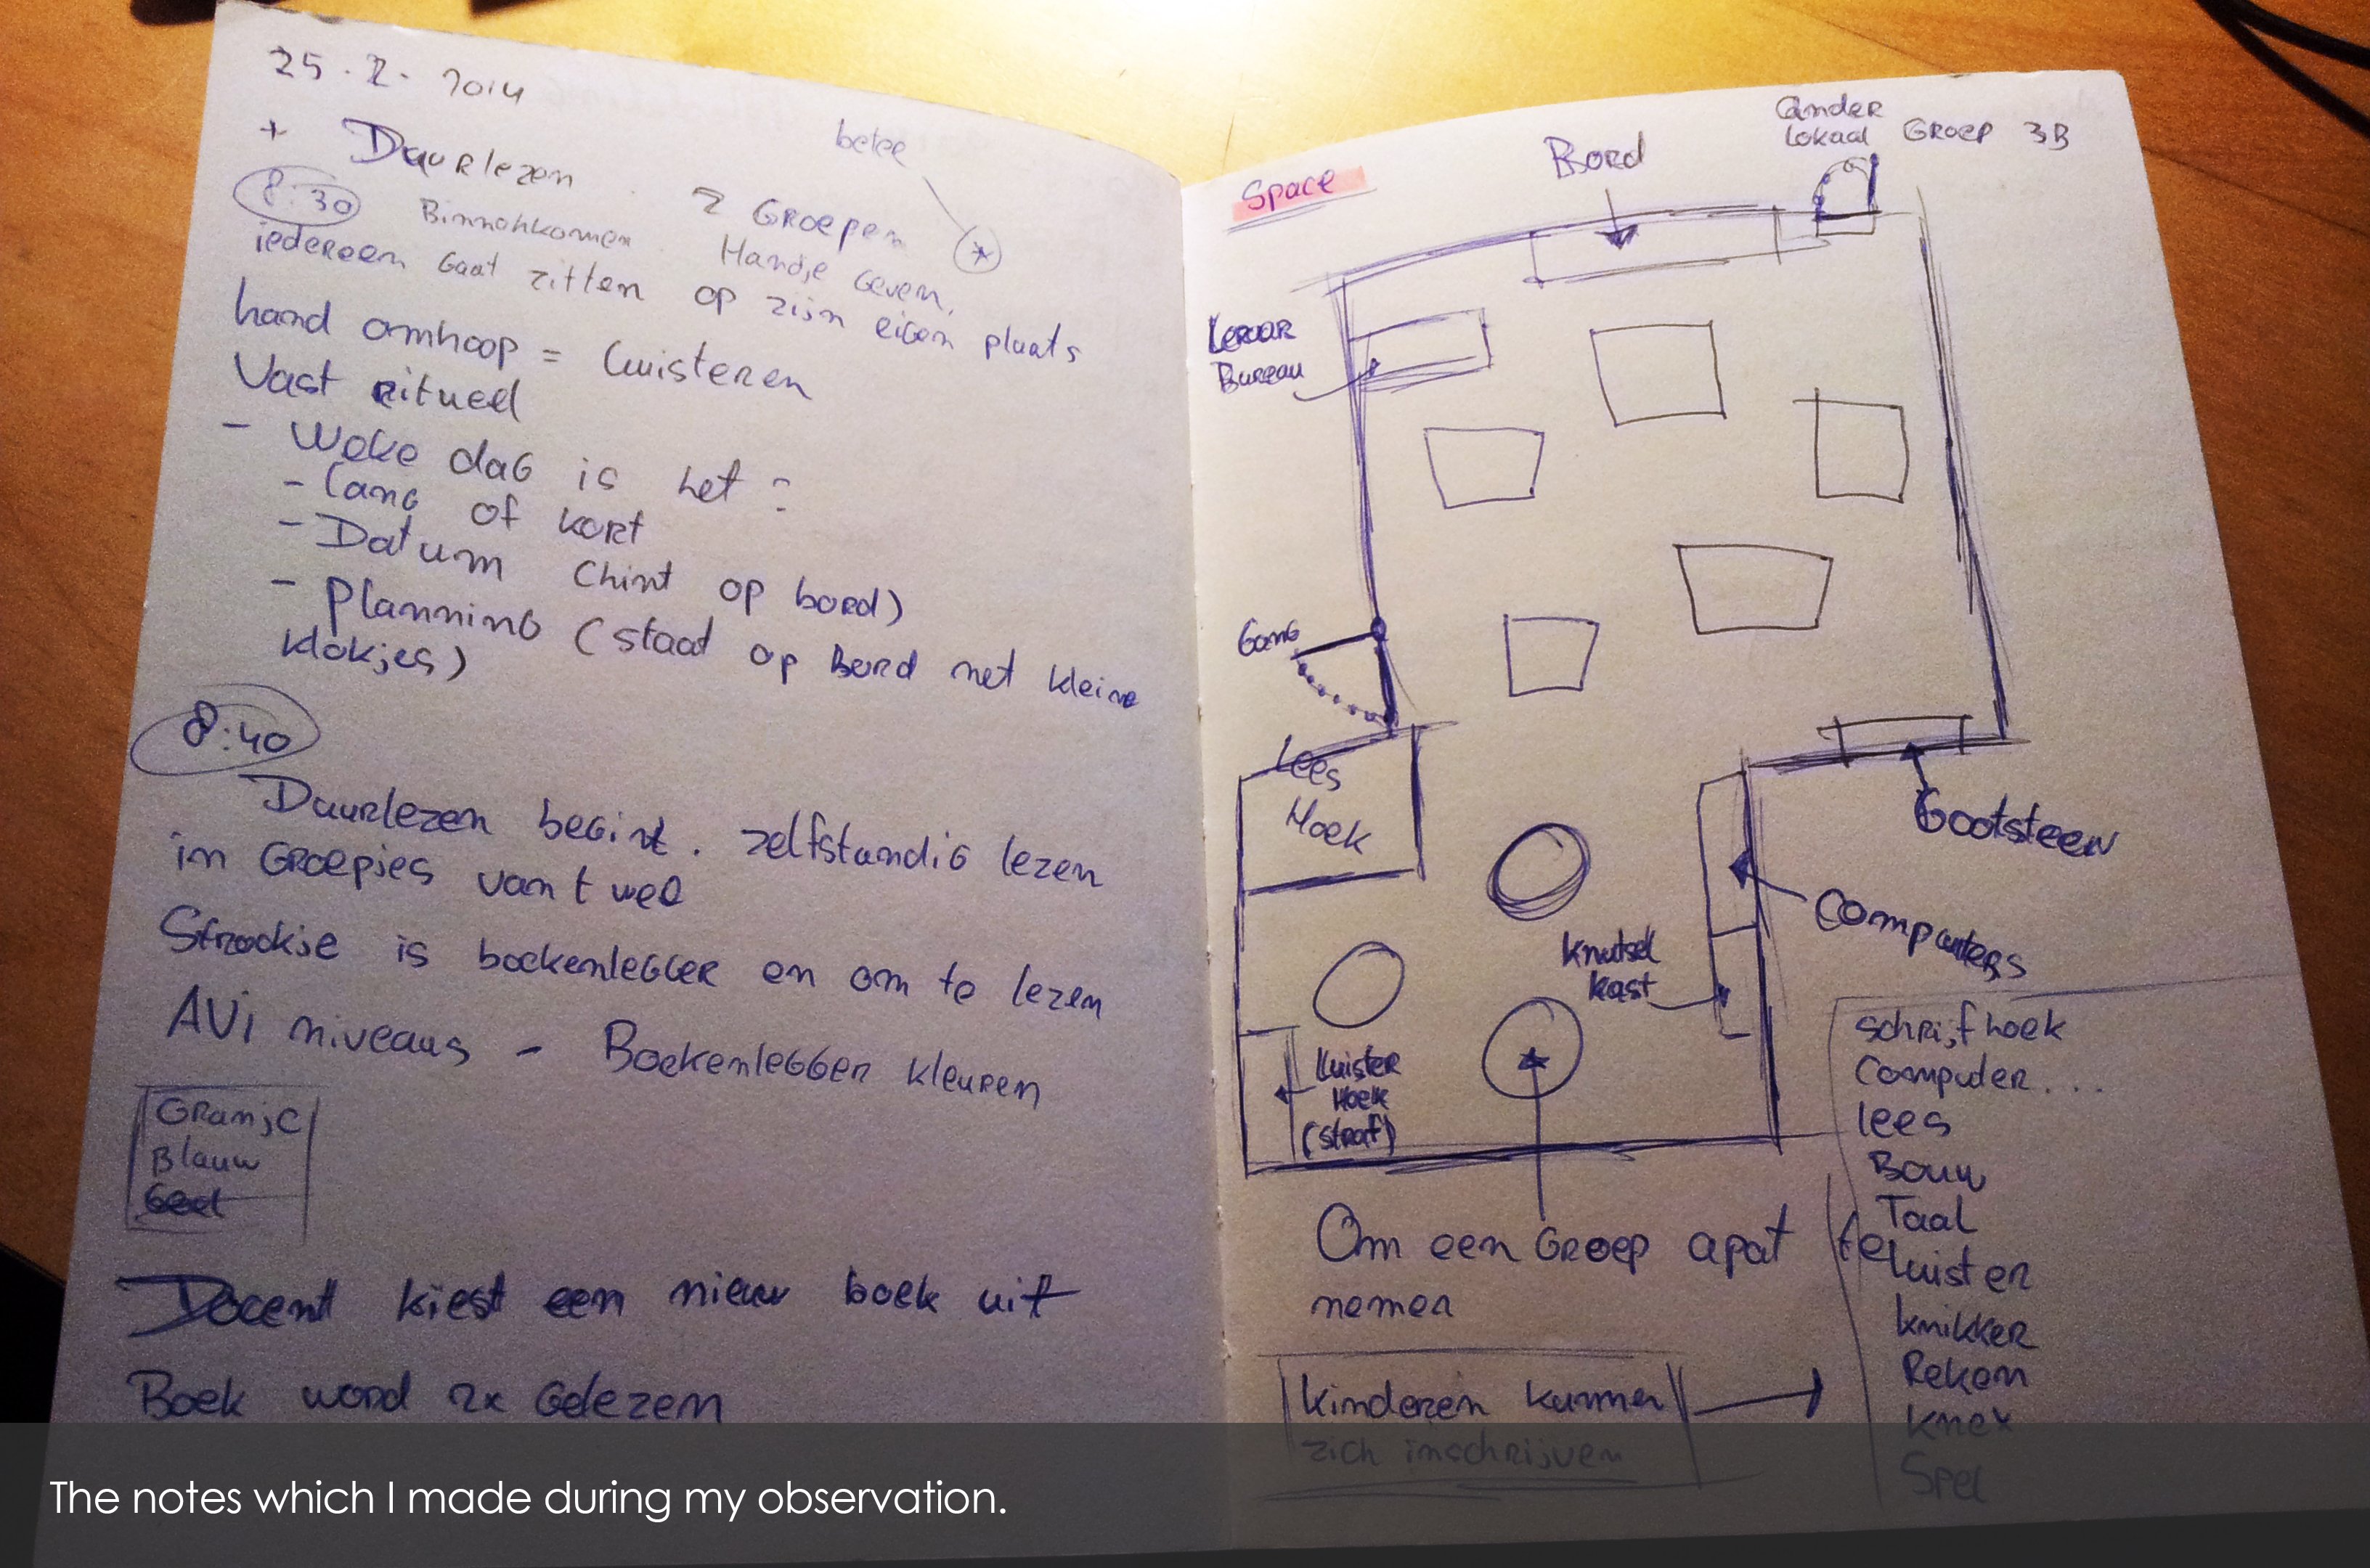 25.2.2014
+ Duurlezen 2 Groepen
8:30 Binnenkomen. Handje Geven,
iedereen Gaat zitten op zijn eigen plaats
hand omhoop = luisteren
Vast ritueel
- Welke dag is het?
- lang of kort
- Datum (hint op bord)
- Planning (staat op Bord met kleine
klokjes)
8:40
Duurlezen begint. zelfstandig lezen
in Groepjes van t wee
Strookje is boekenlegger en om te lezen
AVi niveaus - Boekenlegger kleuren
Oranje
Blauw
Geel
Docent kiest een nieuw boek uit
Boek word 2x Gelezen
Space
Bord
ander
lokaal GROEP 3B
Leraar
Bureau
Gang
Lees
Hoek
Gootsteen
Computers
Knutsel
kast
Luister
Hoek
(straf)
Om een Groep apat te
nemen
Kinderen kunnen
zich inschrijven
schrijfhoek
Computer...
lees
Bouw
Taal
luister
knikker
Reken
knex
Spel
The notes which I made during my observation.